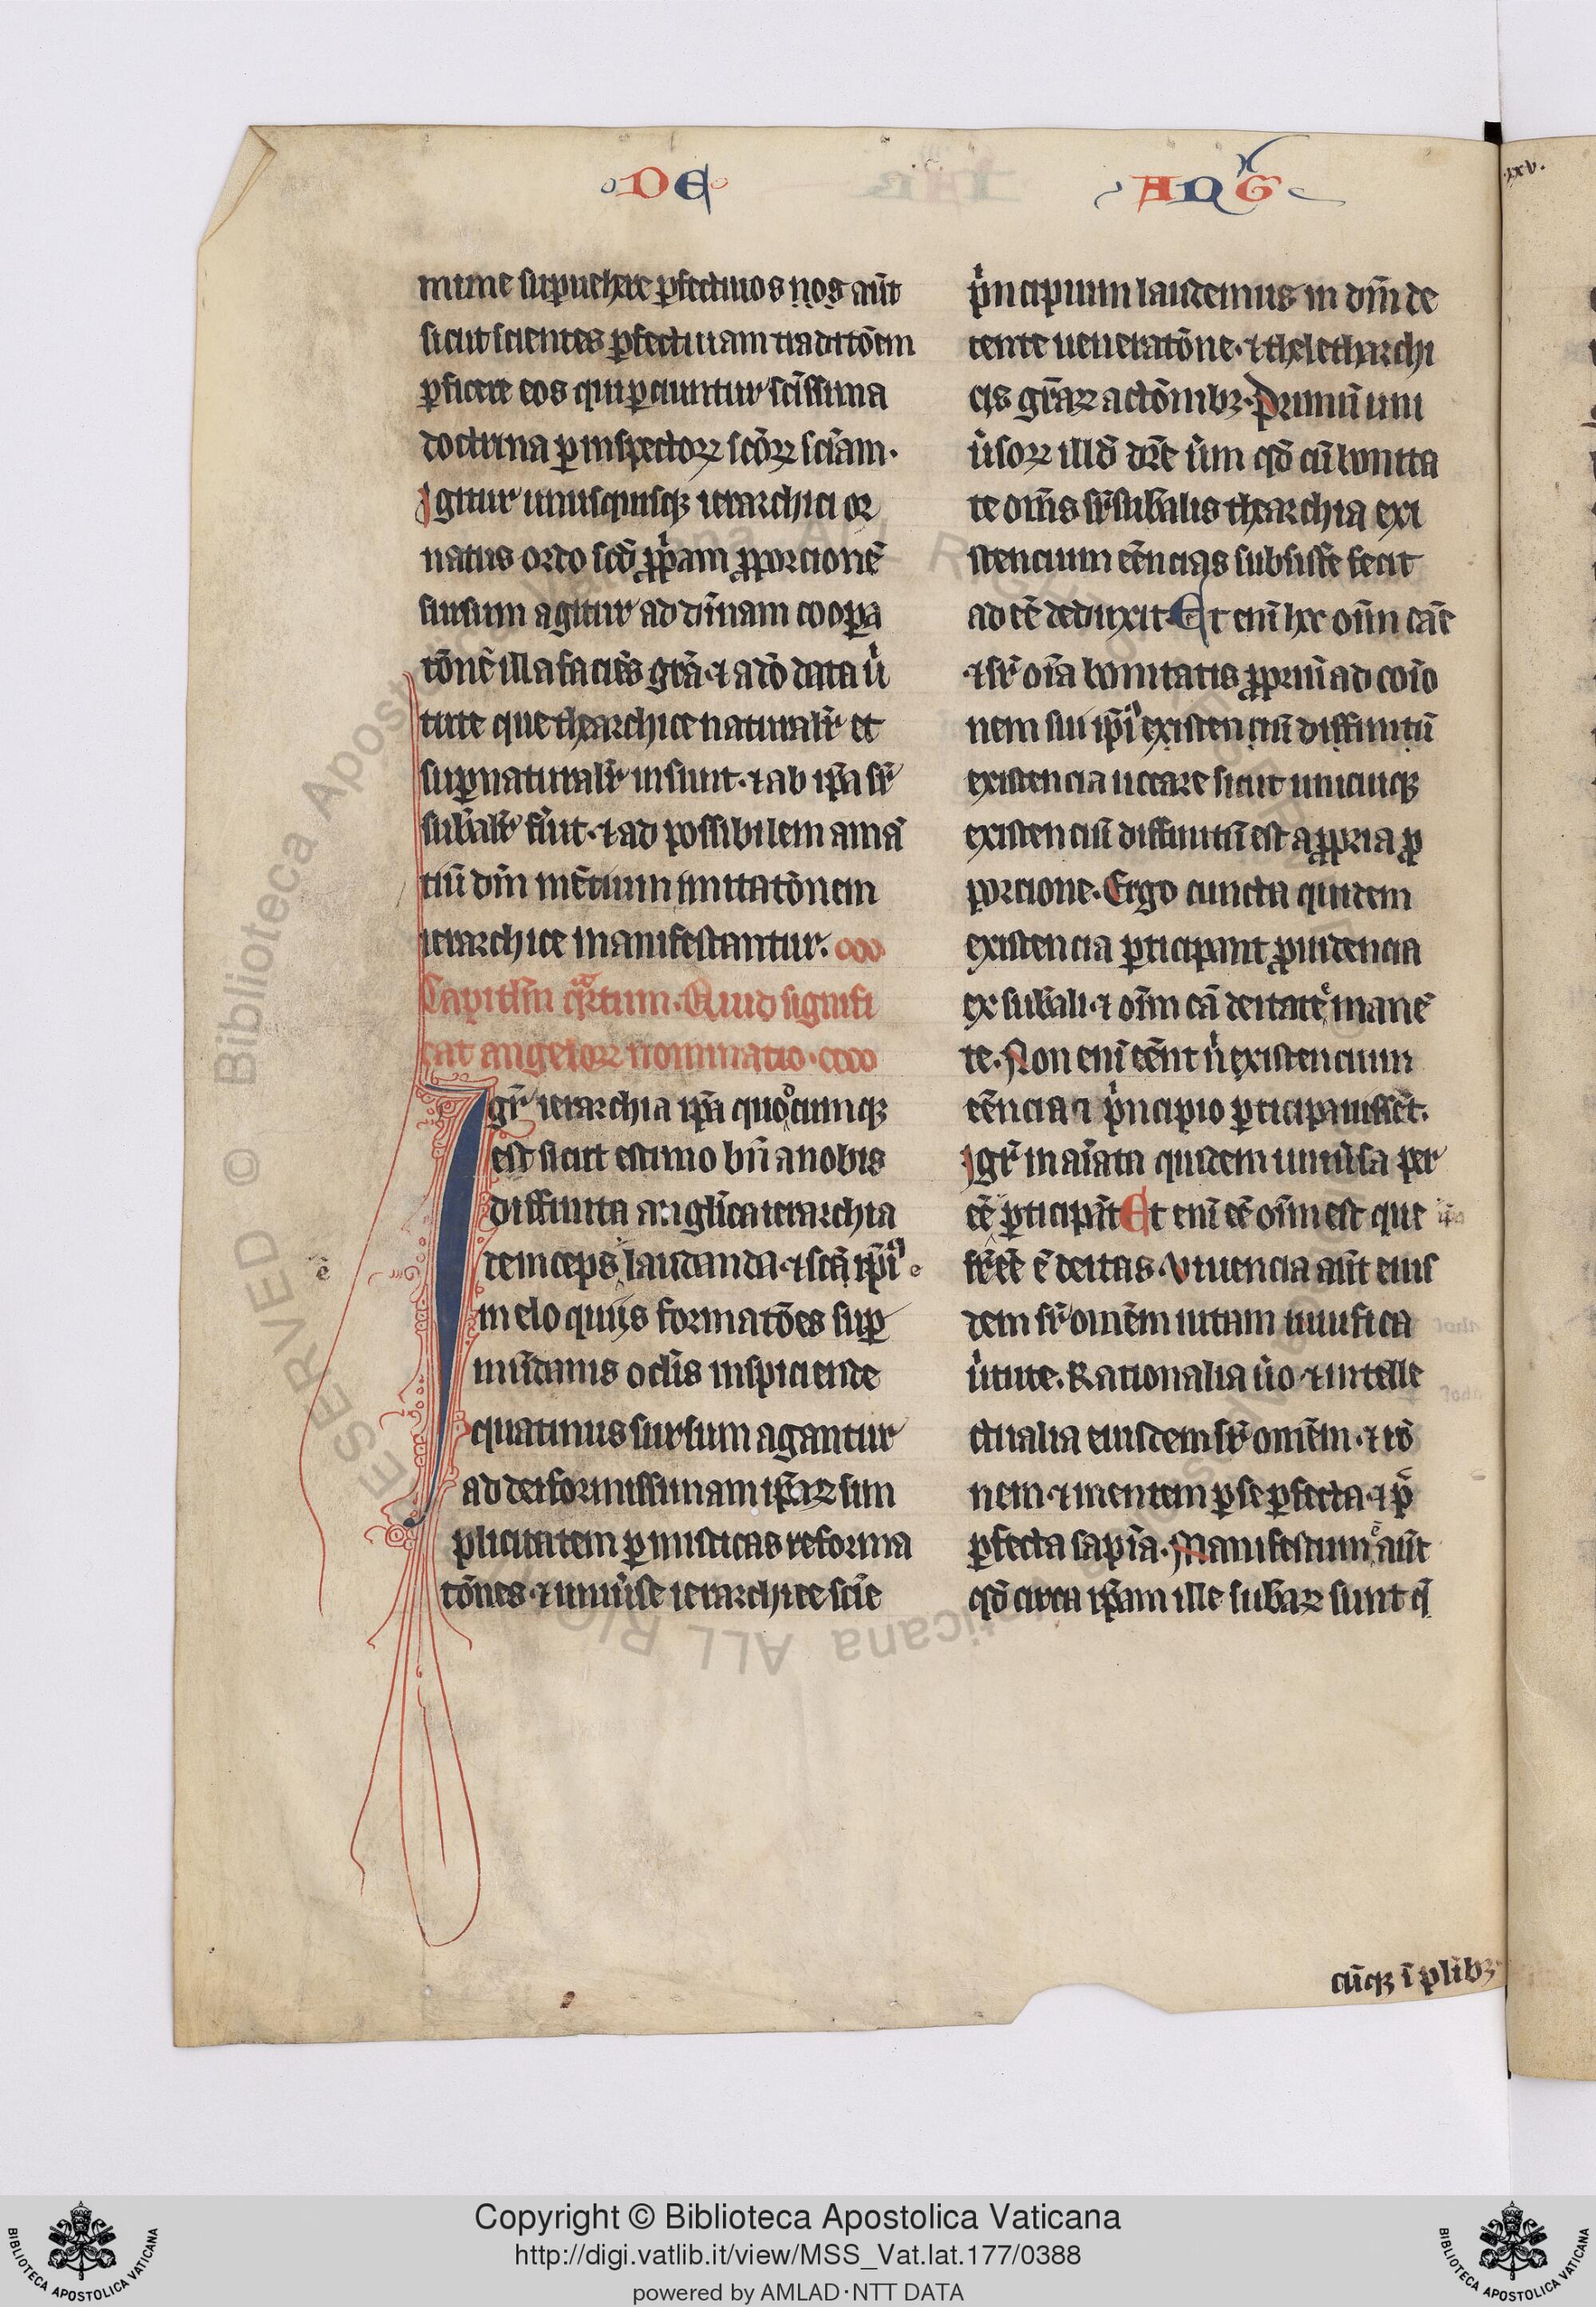 DE ANG
mune superuehere ꝑfectiuos nos aūt
sicut scientes ꝑfectiuam traditōem
ꝑficere eos qui ꝑciuntur sc̄issima
doctrina ꝑ inspectoꝝ sc̄oꝝ sc̄iam.
Igitur unusquisqꝫ ierarchici or
natus ordo scd̄ ꝓpͥam ꝓporcionē
sursum agitur ad diuīnam coopa
tōnē illa faciēs gr̄a ⁊ a dō data uͥ
tute que thearchice naturalr̄ et
suꝑnaturalr̄ insunt. ⁊ ab ip̄a sr̄
sub̄alr̄ fiūt. ⁊ ad possibilem amā
tiū dm̄ mētium imitatōnem
ierarchice manifestantur.
Capitlm̄ qͣrtum. Quid signifi
cat angeloꝝ nominatio.
Igr̄ ierarchia ip̄a quocumqꝫ
est sicut estimo bn̄ a nobis
diffinita anglica ierarchia
deinceps laudanda ⁊ sc̄a ip̄iꝰ
in eloquijs formatōes suꝑ
mūdanis oclīs inspiciende
quatinus sursum agantur
ad deiformissimam ip̄aꝝ sim
plicitatem ꝑ misticas reforma
tōnes. ⁊ uniuͥse ierarchice scīe
pͥncipium laudemus in dīm de
cente ueneratōne. ⁊ theletharchi
cis gr̄aꝝ actōnibꝫ. Primū uni
uͥsoꝝ illd̄ dr̄e uͥm qd̄ cū bonita
te om̄s sr̄sub̄alis thearchia exi
stencium eēncias subsistē fecit
ad eē deduxit. Et eni hec oīm cāe
⁊ sr̄ oīa bonitatis ꝓpriū ad coīo
nem sui ip̄iꝰ existenciū diffinitū
existencia uocare sicut unicuiqꝫ
existenciū diffinitū est a ꝓpria ꝓ
porcione. Ergo cuncta quidem
existencia ꝑticipant ꝓuidencia
ex sub̄ali. ⁊ oīm cā deitate mane
te. Non eni eēnt nͥ existencium
eēncia ⁊ pͥncipio ꝑticipauissēt.
Igr̄ inaīata quidem uniuͥsa per
eē ꝑticipāt. Et eni eē oīm est que
sr̄ eē ē deitas. Viuencia aūt eius
dem sr̄ omēm uitam uiuifica
uͥtute. Rationalia uͦo ⁊ intelle
ctualia eiusdem sr̄ omēm. ⁊ rō
nem. ⁊ mentem ꝑ se ꝑfecta. ⁊ p̄
ꝑfecta sapīa. Manifestum aūt
qd̄ circa ip̄am ille sub̄aꝝ sunt q̄
cūqꝫ ī plibꝫ
Copyright © Biblioteca Apostolica Vaticana
http://digi.vatlib.it/view/MSS_Vat.lat.177/0388
powered by AMLAD·NTT DATA